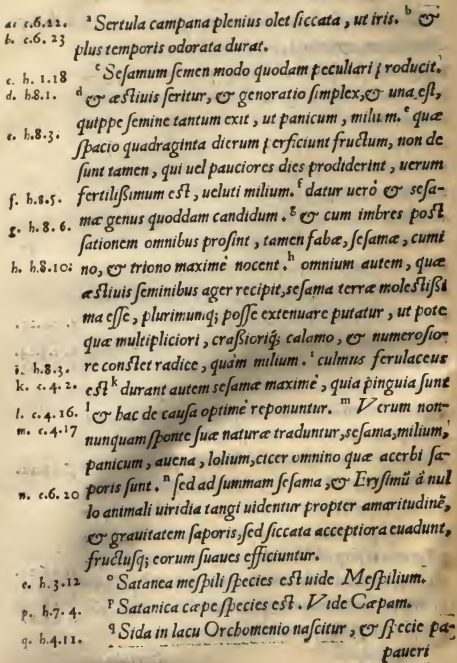 a. c.6.22. ᵃ Sertula campana plenius olet siccata, ut iris. ᵇ &
b. c.6. 23 plus temporis odorata durat.
c. h. 1.18 ᶜ Sesamum semen modo quodam peculiari producit.
d. h.8.1. ᵈ & æstiuis seritur, & genoratio simplex, & una est,
quippe semine tantum exit, ut panicum, milium. ᵉ quæ
e. h.8.3. spacio quadraginta dierum perficiunt fructum, non de
sunt tamen, qui uel pauciores dies prodiderint, uerum
f. h.8.5. fertilissimum est, ueluti milium. ᶠ datur uerò & sesa-
mæ genus quoddam candidum. ᵍ & cum imbres post
g. h.8.6. sationem omnibus prosint, tamen fabæ, sesamæ, cumi
h. h.8.10: no, & triono maximè nocent. ʰ omnium autem, quæ
æstiuis seminibus ager recipit, sesama terræ molestissi
ma esse, plurimumq; posse extenuare putatur, ut pote
quæ multipliciori, crassioriq; calamo, & numerosio-
i. h.8.3. re constet radice, quàm milium. ⁱ culmus ferulaceus
k. c.4.2. est ᵏ durant autem sesamæ maximè, quia pinguia sunt
l. c.4.16. ˡ & hac de causa optimè reponuntur. ᵐ Verum non-
m. c.4.17 nunquam sponte suæ naturæ traduntur, sesama, milium,
panicum, auena, lolium, cicer omnino quæ acerbi sa-
n. c.6.20 poris sunt. ⁿ sed ad summam sesama, & Erysimũ à nul
lo animali uiridia tangi uidentur propter amaritudinẽ,
& grauitatem saporis, sed siccata acceptiora euadunt,
fructusq; eorum suaues efficiuntur.
o. h.3.12 ᵒ Satanea mespili species est uide Mespilium.
p. h.7.4. ᵖ Satanica cæpe species est. Vide Cæpam.
q. h.4.11. ᑫ Sida in lacu Orchomenio nascitur, & specie pa-
paueri